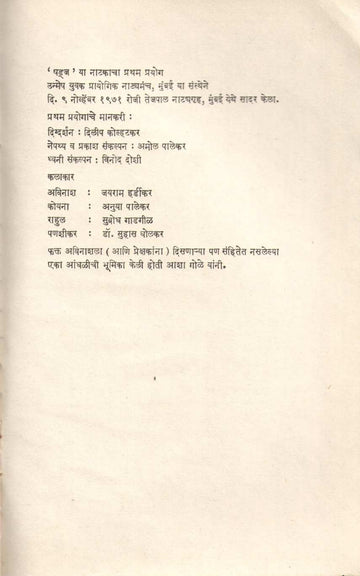 ' षड्ज ' या नाटकाचा प्रथम प्रयोग
उन्मेष युवक प्रायोगिक नाट्यमंच, मुंबई या संस्थेने
दि. ९ नोव्हेंबर १९७१ रोजी तेजपाल नाट्यगृह, मुंबई येथे सादर केला.
प्रथम प्रयोगाचे मानकरी :
दिग्दर्शन : दिलीप कोल्हटकर
नेपथ्य व प्रकाश संकल्पन : अमोल पालेकर
ध्वनी संकल्पन : विनोद दोशी
कलाकार
अविनाश : जयराम हर्डीकर
कोयना : अनुया पालेकर
राहुल : सुबोध गाडगीळ
पणशीकर : डॉ. सुहास घोलकर
फक्त अविनाशला ( आणि प्रेक्षकांना ) दिसणाऱ्या पण संहितेत नसलेल्या
एका आंधळीची भूमिका केली होती आशा गोळे यांनी.